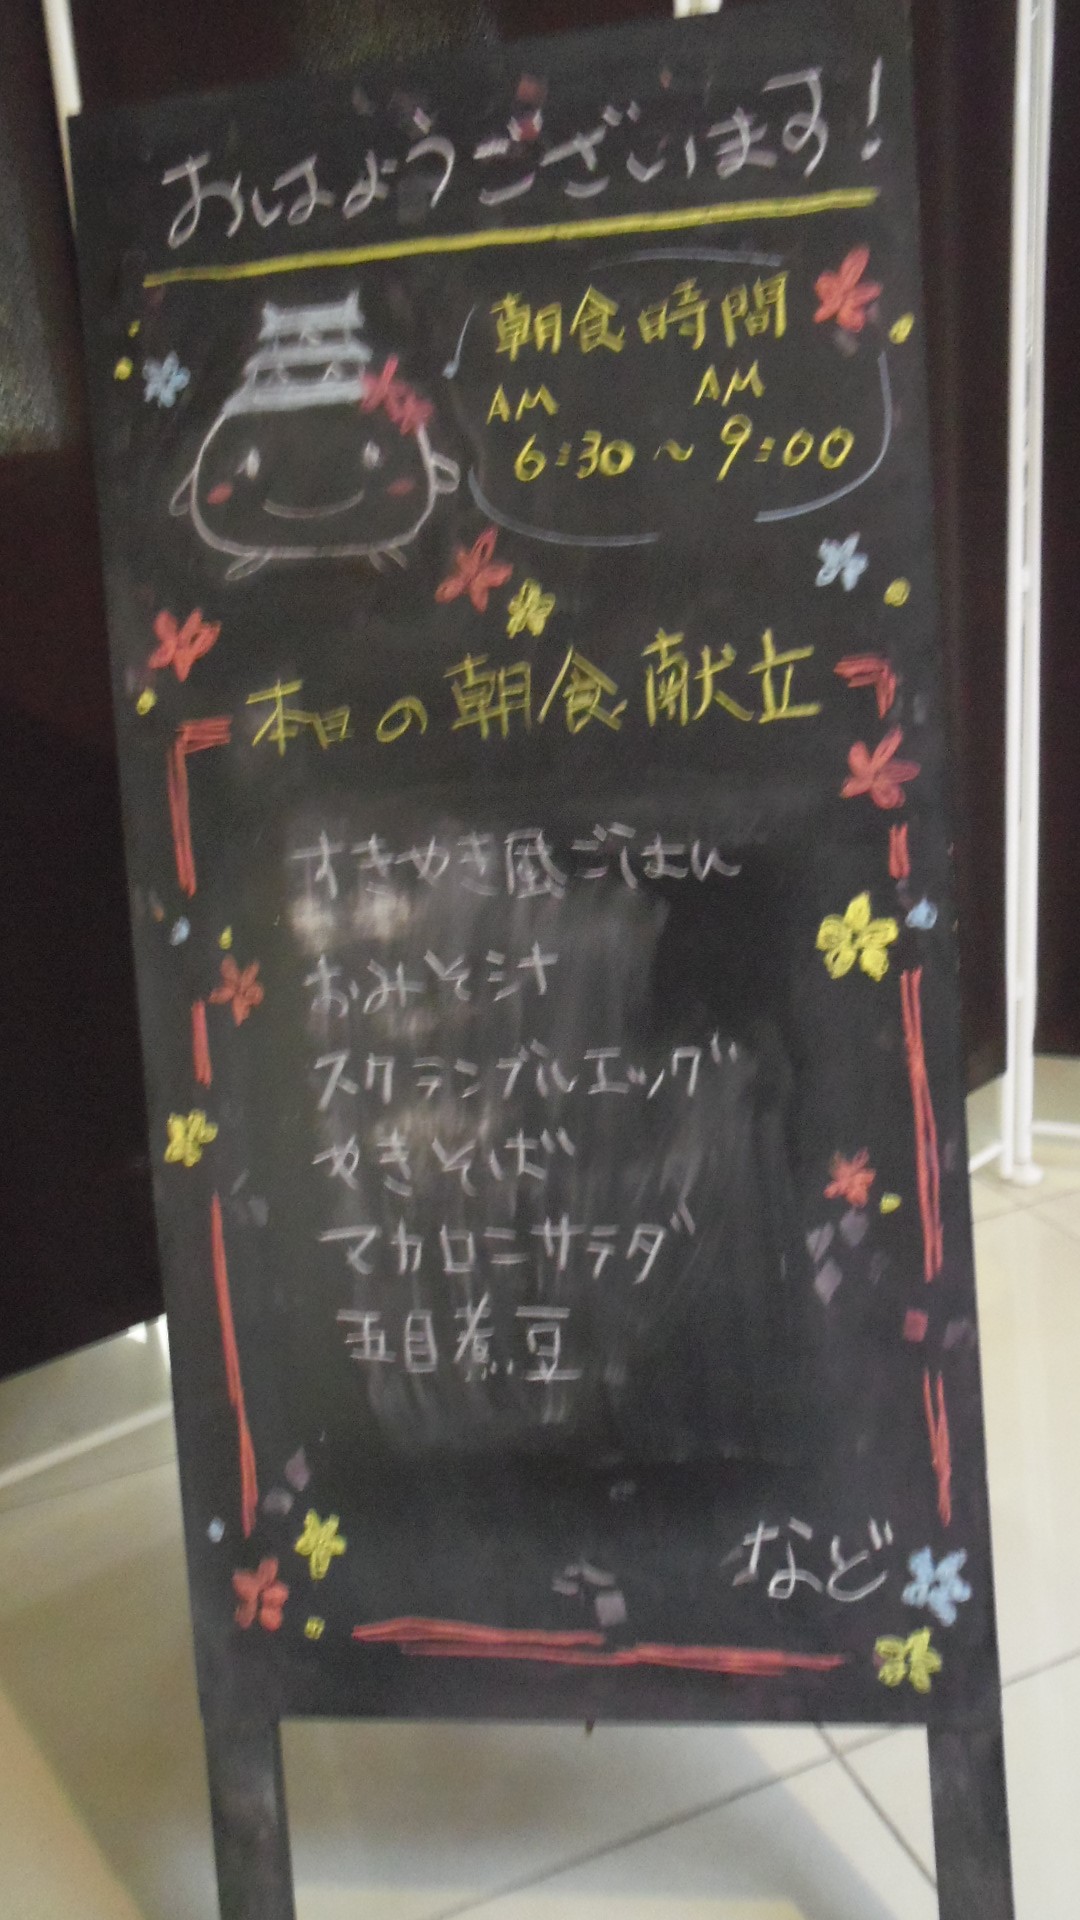 おはようございます!
朝食時間
AM AM
6:30~9:00
本日の朝食献立
すきやき風ごはん
おみそ汁
スクランブルエッグ
やきそば
マカロニサラダ
五目煮豆
など